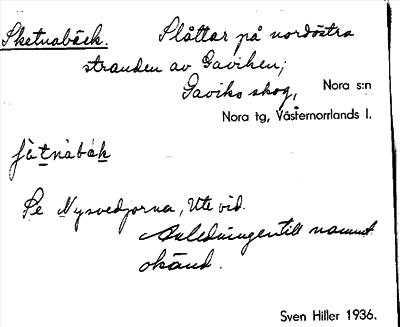 Sketnabäck. Slåttar på nordöstra
stranden av Gaviken;
Gaviks skog, Nora s:n
Nora tg, Västernorrlands l.
Se Nysvedjorna, Ute vid.
Anledningen till namnet
okänd.
Sven Hiller 1936.